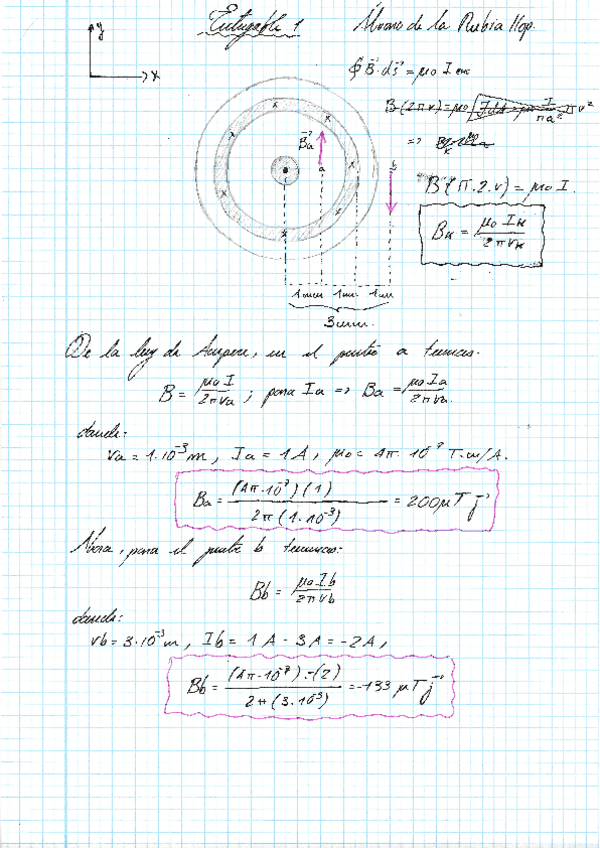 Entregable 1
Álvaro de la Rubia Hop.
y
x
∮ B⃗·ds⃗ = μ0 I enc
B(2πr) = μ0
I
πa²
πr²
=>
B(π·2·r) = μ0 I.
Bk = μ0 Ik / 2πrk
B⃗a
a
b
x x x x x x x
1mm 1mm 1mm
3mm.
De la ley de Ampere, en el punto a tenemos.
B = μ0 I / 2πra ; para Ia => Ba = μ0 Ia / 2πra.
donde:
ra = 1·10⁻³ m, Ia = 1 A, μ0 = 4π·10⁻⁷ T·m/A.
Ba = (4π·10⁻⁷)(1) / 2π(1·10⁻³) = 200μT j⃗
Ahora, para el punto b tenemos:
Bb = μ0 Ib / 2πrb
donde:
rb = 3·10⁻³ m, Ib = 1 A - 3A = -2A,
Bb = (4π·10⁻⁷)·-(2) / 2π(3·10⁻³) = -133 μT j⃗